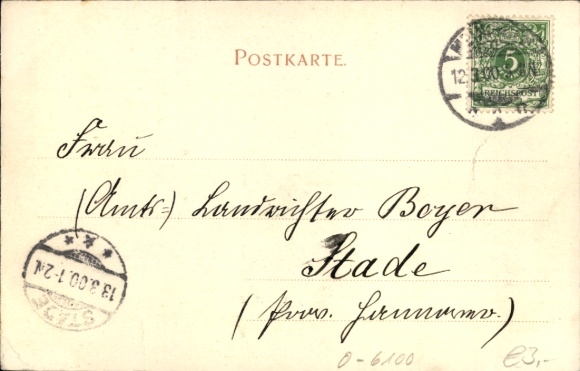 POSTKARTE.
5
REICHSPOST
12.3.00
N
Frau
(Amts=) Landrichter Boyer
Stade
(Prov. Hannover.)
13.3.00.1-2N.
STADE
0-6100
€3,-